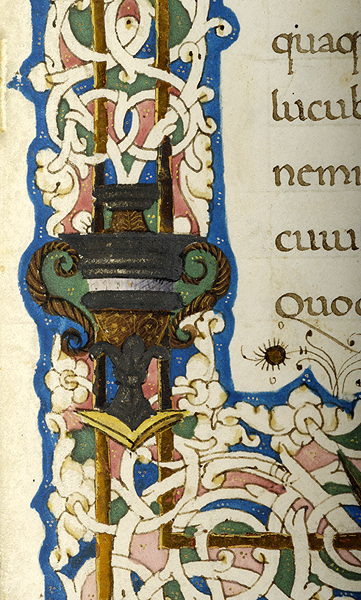 quaq
lucub
nemi
cuiu
Quoc